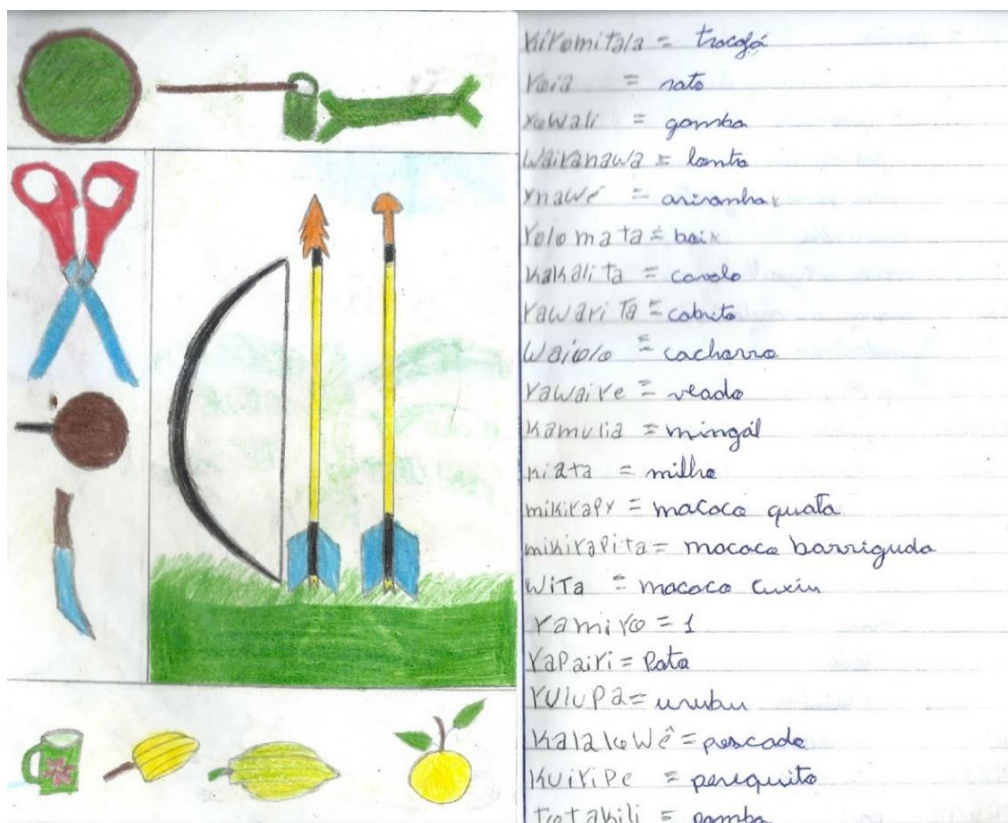 Kiromitala = tracajá
Yoia = rato
Yowali = gamba
Waikanawa = lontra
Ynawé = ariranha
Yolomata = boi
Kakalita = cavalo
Yawarita = cabrito
Waiolo = cachorro
Yawaire = veado
Kamulia = mingál
Kiata = milho
mikiyapy = macaco quata
mikiyapita = macaco barrigudo
Wita = macaco cuxiu
Yamiyo = 1
Yapairi = Pato
Yulupa = urubu
Kalalowê = pescado
Kuiripe = periquito
Totakili = pomba